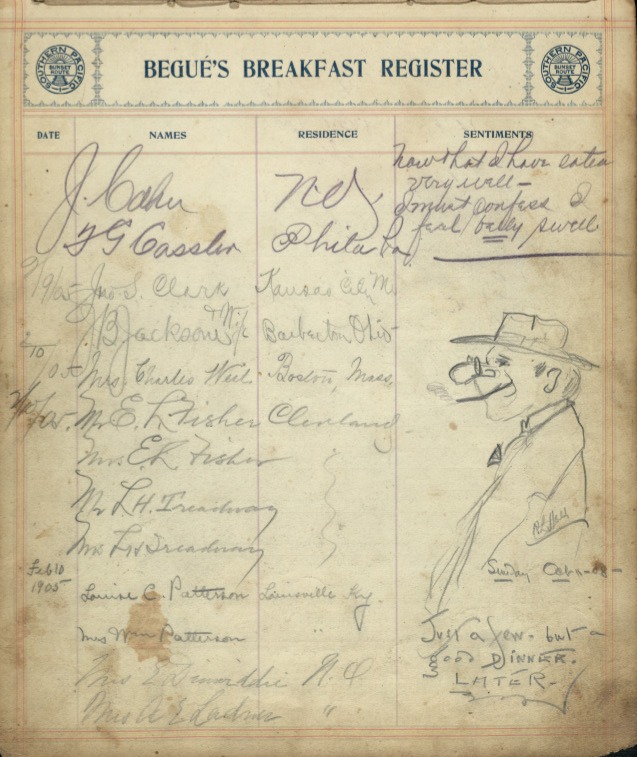 SOUTHERN PACIFIC
SUNSET ROUTE
BEGUÉ'S BREAKFAST REGISTER
SOUTHERN PACIFIC
SUNSET ROUTE
DATE NAMES RESIDENCE SENTIMENTS
Now that I have eaten
very well—
I must confess I
feel swell
J. Cahn N.O.
F G Cassler Phila Pa
2/9/05 Jno. S. Clark Kansas City Mo
Jackson Barberton Ohio
2/10/05 Mrs. Charles Weil. Boston, Mass.
Mr E. L. Fisher Cleveland
Mrs E. L. Fisher
Mr L. H. Treadway
Mrs L. H. Treadway
Sunday
Feb 10
1905
Louise C. Patterson Louisville Ky.
Mrs Wm Patterson
Just a Jew. but a
Good DINNER.
LATER.
Mrs N.O.
Mrs A. E. "